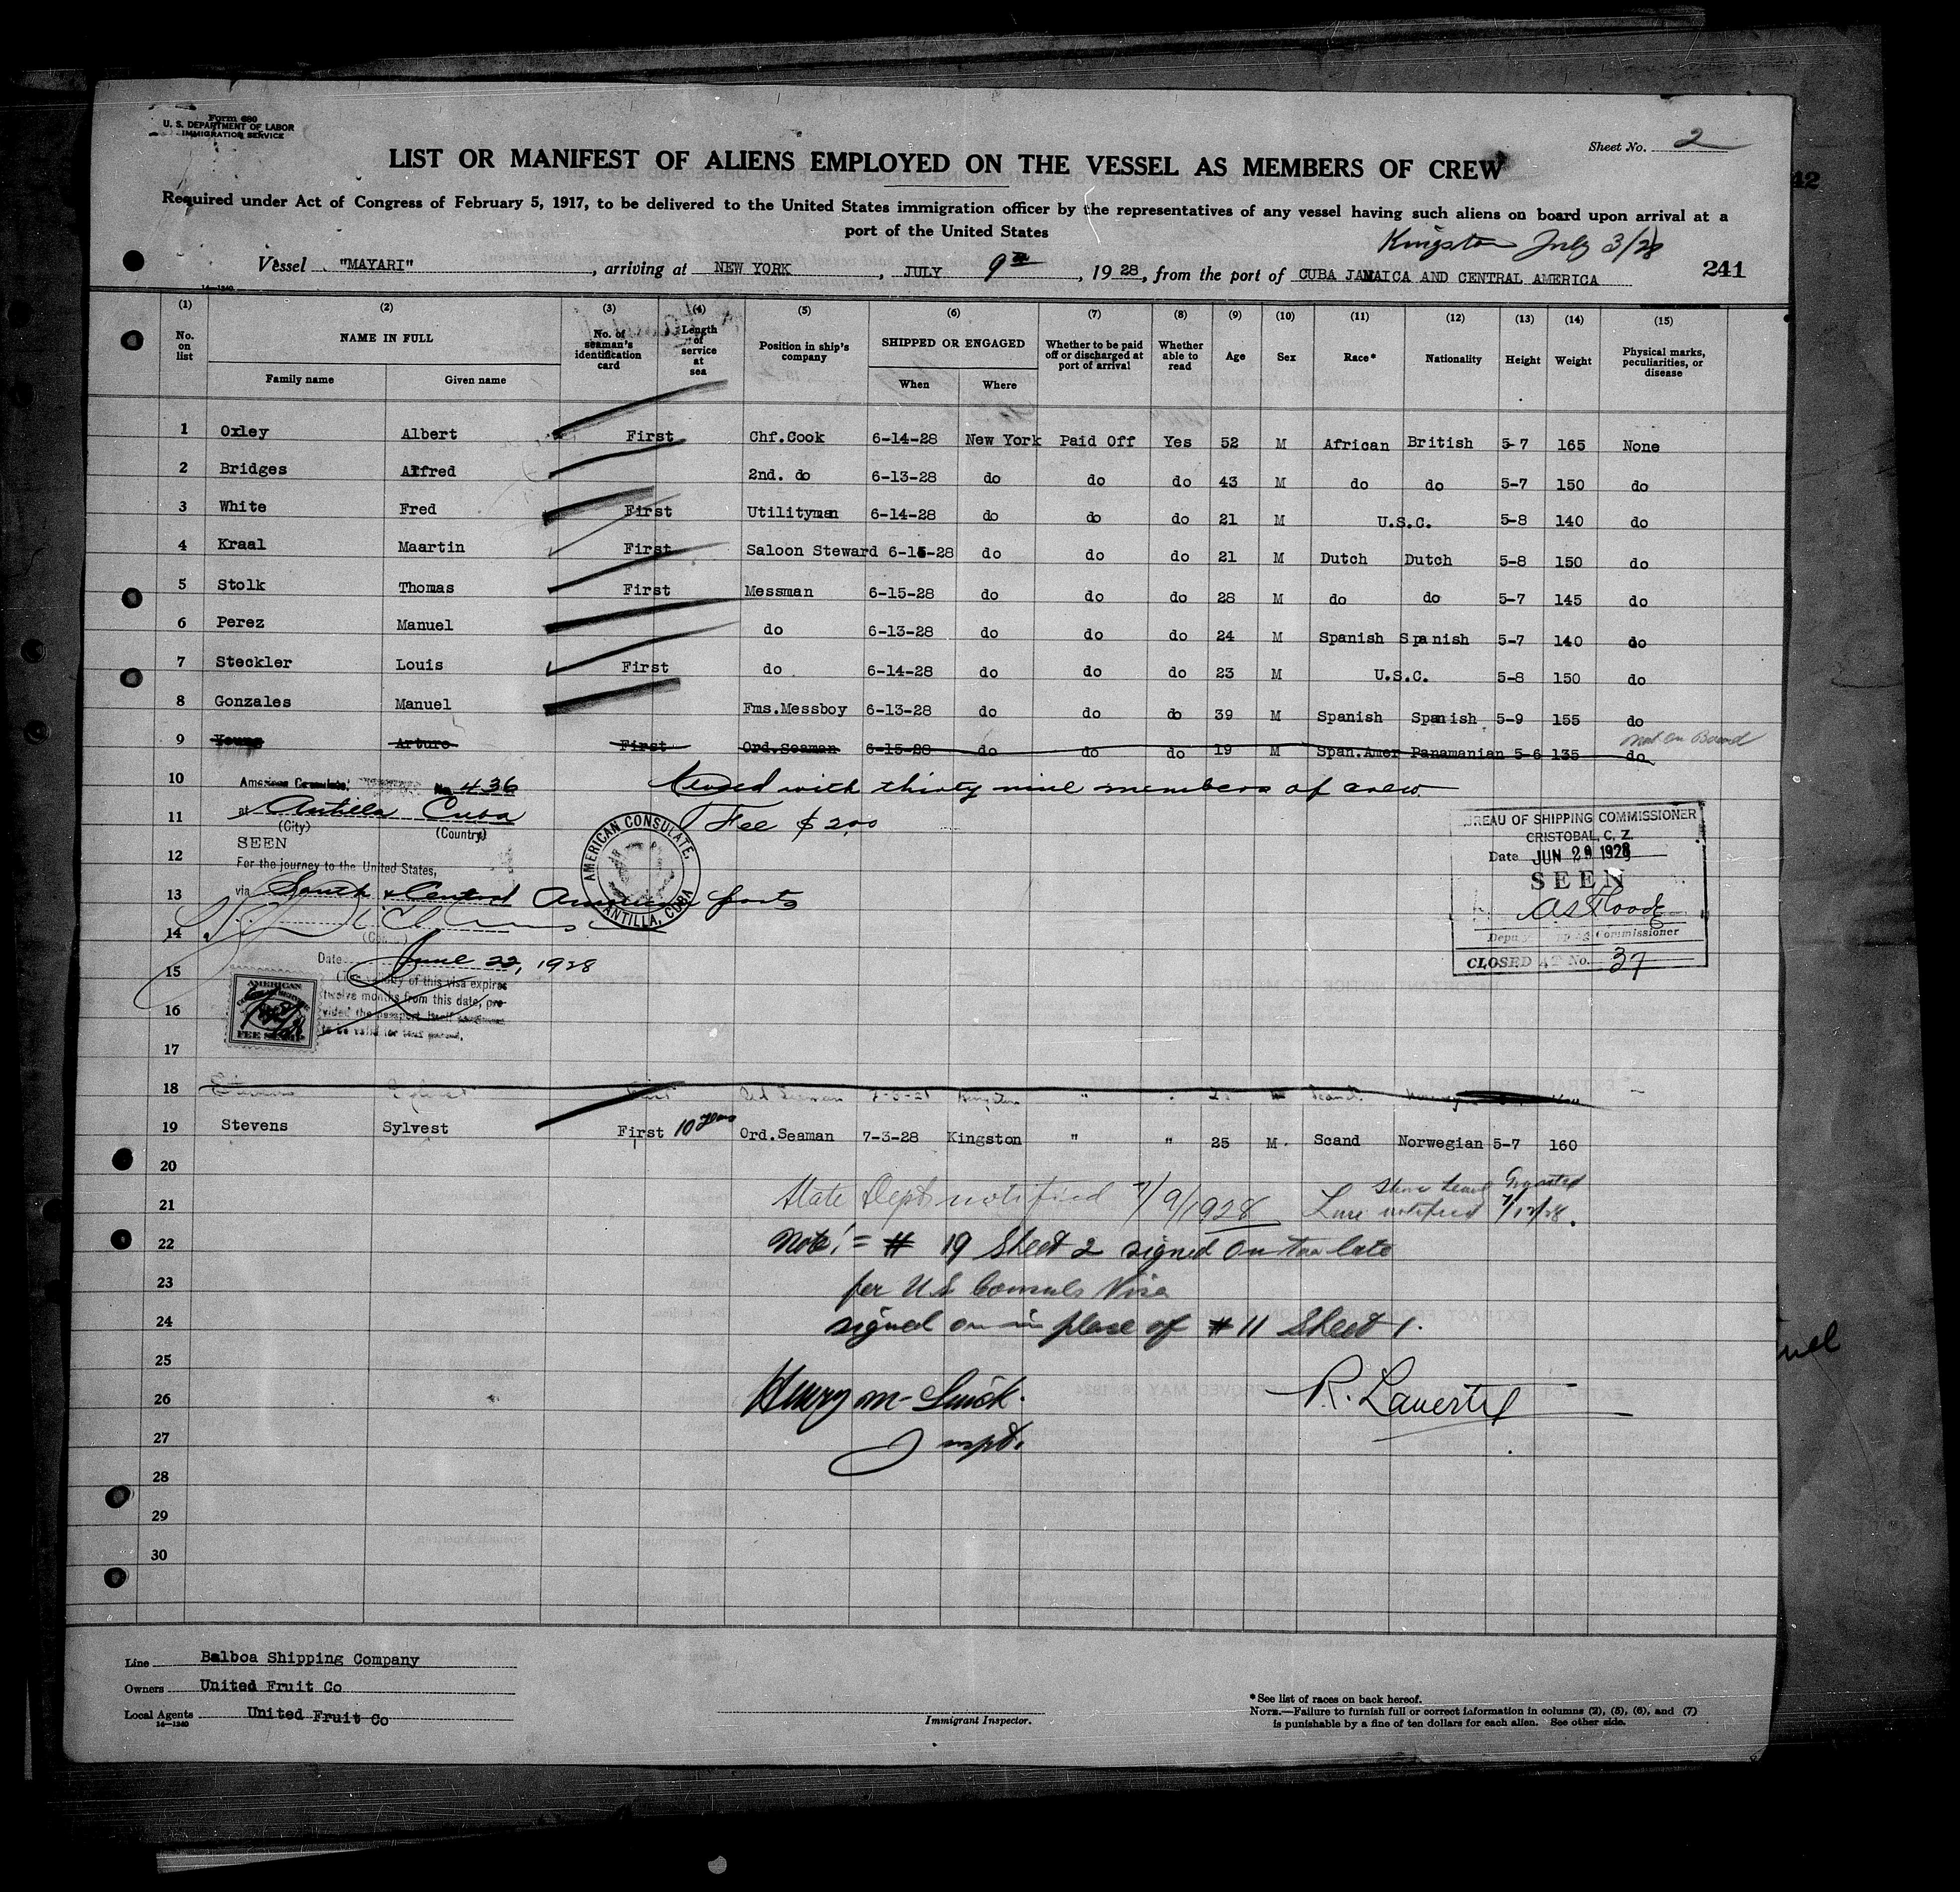 Form 680
U. S. DEPARTMENT OF LABOR
IMMIGRATION SERVICE
Sheet No. 2
LIST OR MANIFEST OF ALIENS EMPLOYED ON THE VESSEL AS MEMBERS OF CREW
Required under Act of Congress of February 5, 1917, to be delivered to the United States immigration officer by the representatives of any vessel having such aliens on board upon arrival at a
port of the United States
Kingston July 3/28
Vessel "MAYARI", arriving at NEW YORK, JULY 9th, 1928, from the port of CUBA JAMAICA AND CENTRAL AMERICA 241
42
14-1240
(1) (2) (3) (4) (5) (6) (7) (8) (9) (10) (11) (12) (13) (14) (15)
No. on list NAME IN FULL No. of seaman's identification card Length of service at sea Position in ship's company SHIPPED OR ENGAGED Whether to be paid off or discharged at port of arrival Whether able to read Age Sex Race* Nationality Height Weight Physical marks, peculiarities, or disease
Family name Given name When Where
1 Oxley Albert First Chf.Cook 6-14-28 New York Paid Off Yes 52 M African British 5-7 165 None
2 Bridges Alfred 2nd. do 6-13-28 do do do 43 M do do 5-7 150 do
3 White Fred First Utilityman 6-14-28 do do do 21 M U.S.C. 5-8 140 do
4 Kraal Maartin First Saloon Steward 6-15-28 do do do 21 M Dutch Dutch 5-8 150 do
5 Stolk Thomas First Messman 6-15-28 do do do 28 M do do 5-7 145 do
6 Perez Manuel do 6-13-28 do do do 24 M Spanish Spanish 5-7 140 do
7 Steckler Louis First do 6-14-28 do do do 23 M U.S.C. 5-8 150 do
8 Gonzales Manuel Fms.Messboy 6-13-28 do do do 39 M Spanish Spanish 5-9 155 do
9 Young Arturo First Ord.Seaman 6-15-28 do do do 19 M Span.Amer Panamanian 5-6 135 do Not on Board
10 American Consulate No. 436 with thirty nine members of crew
at Antilla Cuba
11 (City) (Country) Fee $2.00
SEEN
12 For the journey to the United States,
13 via South & Central American ports
AMERICAN CONSULATE, ANTILLA, CUBA
BUREAU OF SHIPPING COMMISSIONER
CRISTOBAL, C. Z.
Date JUN 29 1928
SEEN
Deputy Shipping Commissioner
CLOSED AT No. 37
14
Date June 22, 1928
15 (The validity of this visa expires
16 twelve months from this date, pro-
vided the passport itself continues
to be valid for that period.
AMERICAN
FEE STAMP
17
18 Ord Seaman Kingston "
19 Stevens Sylvest First 10 years Ord.Seaman 7-3-28 Kingston " " 25 M. Scand Norwegian 5-7 160
20
21 State Dept. notified 7/9/1928 Shore Leave Granted
Line notified 7/12/28.
22 Note! = # 19 Sheet 2 signed on too late
23 for U.S. Consuls Visa
24 signed on in place of # 11 Sheet 1.
25
26 Henry M. R.
27 Inspt.
28
29
30
Line Balboa Shipping Company
Owners United Fruit Co
Local Agents United Fruit Co
14-1240
Immigrant Inspector.
*See list of races on back hereof.
NOTE.—Failure to furnish full or correct information in columns (2), (5), (6), and (7)
is punishable by a fine of ten dollars for each alien. See other side.